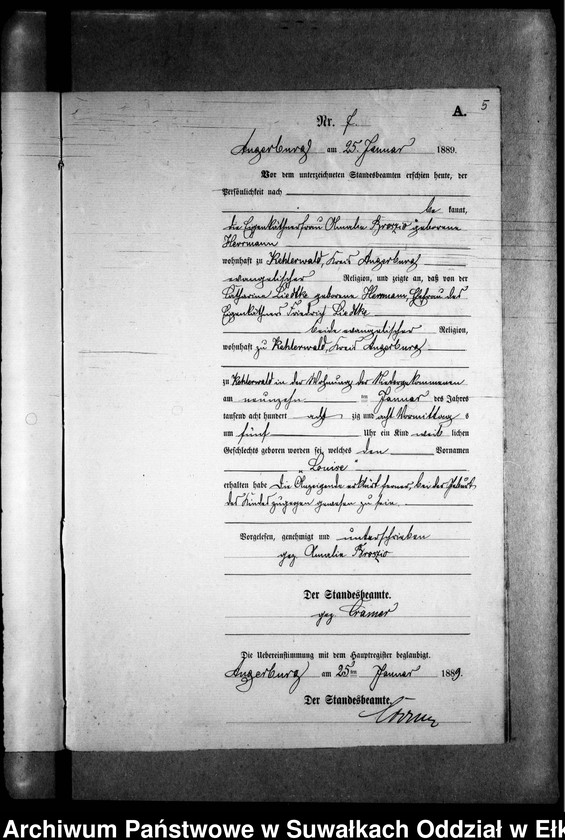 A. 5
Nr. 7.
Angerburg am 25. Januar 1889.
Vor dem unterzeichneten Standesbeamten erschien heute, der
Persönlichkeit nach
be kannt,
die Eigenkäthnerfrau Amalie Brozio geborene
Herrmann
wohnhaft zu Kehlerwald, Kreis Angerburg
evangelischer Religion, und zeigte an, daß von der
Catharina Liedtke geborene Herrmann, Ehefrau des
Eigenkäthners Friedrich Liedtke
beide evangelischer Religion,
wohnhaft zu Kehlerwald, Kreis Angerburg
zu Kehlerwald in der Wohnung der
am neunzehn ten Januar des Jahres
tausend acht hundert acht zig und acht Vormittag s
um fünf Uhr ein Kind weib lichen
Geschlechts geboren worden sei, welches den Vornamen
„Louise"
erhalten habe. Die Anzeigende erklärt ferner, bei der Geburt
des Kindes zugegen gewesen zu sein.
Vorgelesen, genehmigt und unterschrieben
gez. Amalie Brozio
Der Standesbeamte.
gez. Cramer
Die Uebereinstimmung mit dem Hauptregister beglaubigt.
Angerburg am 25ten Januar 1889.
Der Standesbeamte.
Archiwum Państwowe w Suwałkach Oddział w Ełk